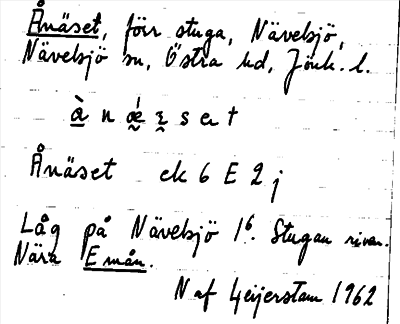 Ånäset, förr stuga, Nävelsjö,
Nävelsjö sn, Östra hd, Jönk. l.
à n ǽ s e t
Ånäset ek 6 E 2 j
Låg på Nävelsjö 1⁶. Stugan riven.
Nära Emån.
N af Geijerstam 1962